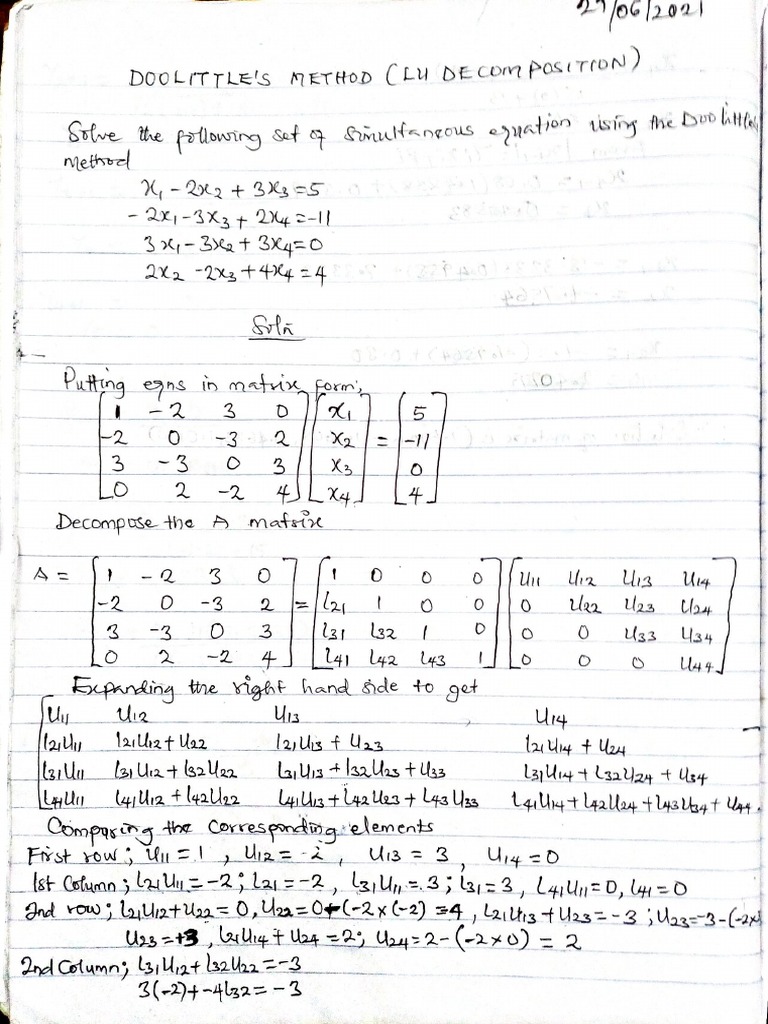 27/06/2021
DOOLITTLE'S METHOD (LU DECOMPOSITION)
Solve the following set of simultaneous equation using the Doolittles
method
x1 - 2x2 + 3x3 = 5
- 2x1 - 3x3 + 2x4 = -11
3x1 - 3x2 + 3x4 = 0
2x2 - 2x3 + 4x4 = 4
Soln
Putting eqns in matrix form;
1 -2 3 0 x1 5
-2 0 -3 2 x2 = -11
3 -3 0 3 x3 0
0 2 -2 4 x4 4
Decompose the A matrix
A = 1 -2 3 0 1 0 0 0 U11 U12 U13 U14
-2 0 -3 2 = l21 1 0 0 0 U22 U23 U24
3 -3 0 3 l31 l32 1 0 0 0 U33 U34
0 2 -2 4 l41 l42 l43 1 0 0 0 U44
Expanding the right hand side to get
U11 U12 U13 U14
l21U11 l21U12 + U22 l21U13 + U23 l21U14 + U24
l31U11 l31U12 + l32U22 l31U13 + l32U23 + U33 l31U14 + l32U24 + U34
l41U11 l41U12 + l42U22 l41U13 + l42U23 + l43U33 l41U14 + l42U24 + l43U34 + U44.
Comparing the corresponding elements
First row; U11 = 1, U12 = -2, U13 = 3, U14 = 0
1st Column; l21U11 = -2; l21 = -2, l31U11 = 3; l31 = 3, l41U11 = 0, l41 = 0
2nd row; l21U12 + U22 = 0, U22 = 0 - (-2 x (-2) = -4, l21U13 + U23 = -3; U23 = -3 - (-2x3
U23 = +3, l21U14 + U24 = 2; U24 = 2 - (-2 x 0) = 2
2nd Column; l31U12 + l32U22 = -3
3(-2) + -4l32 = -3